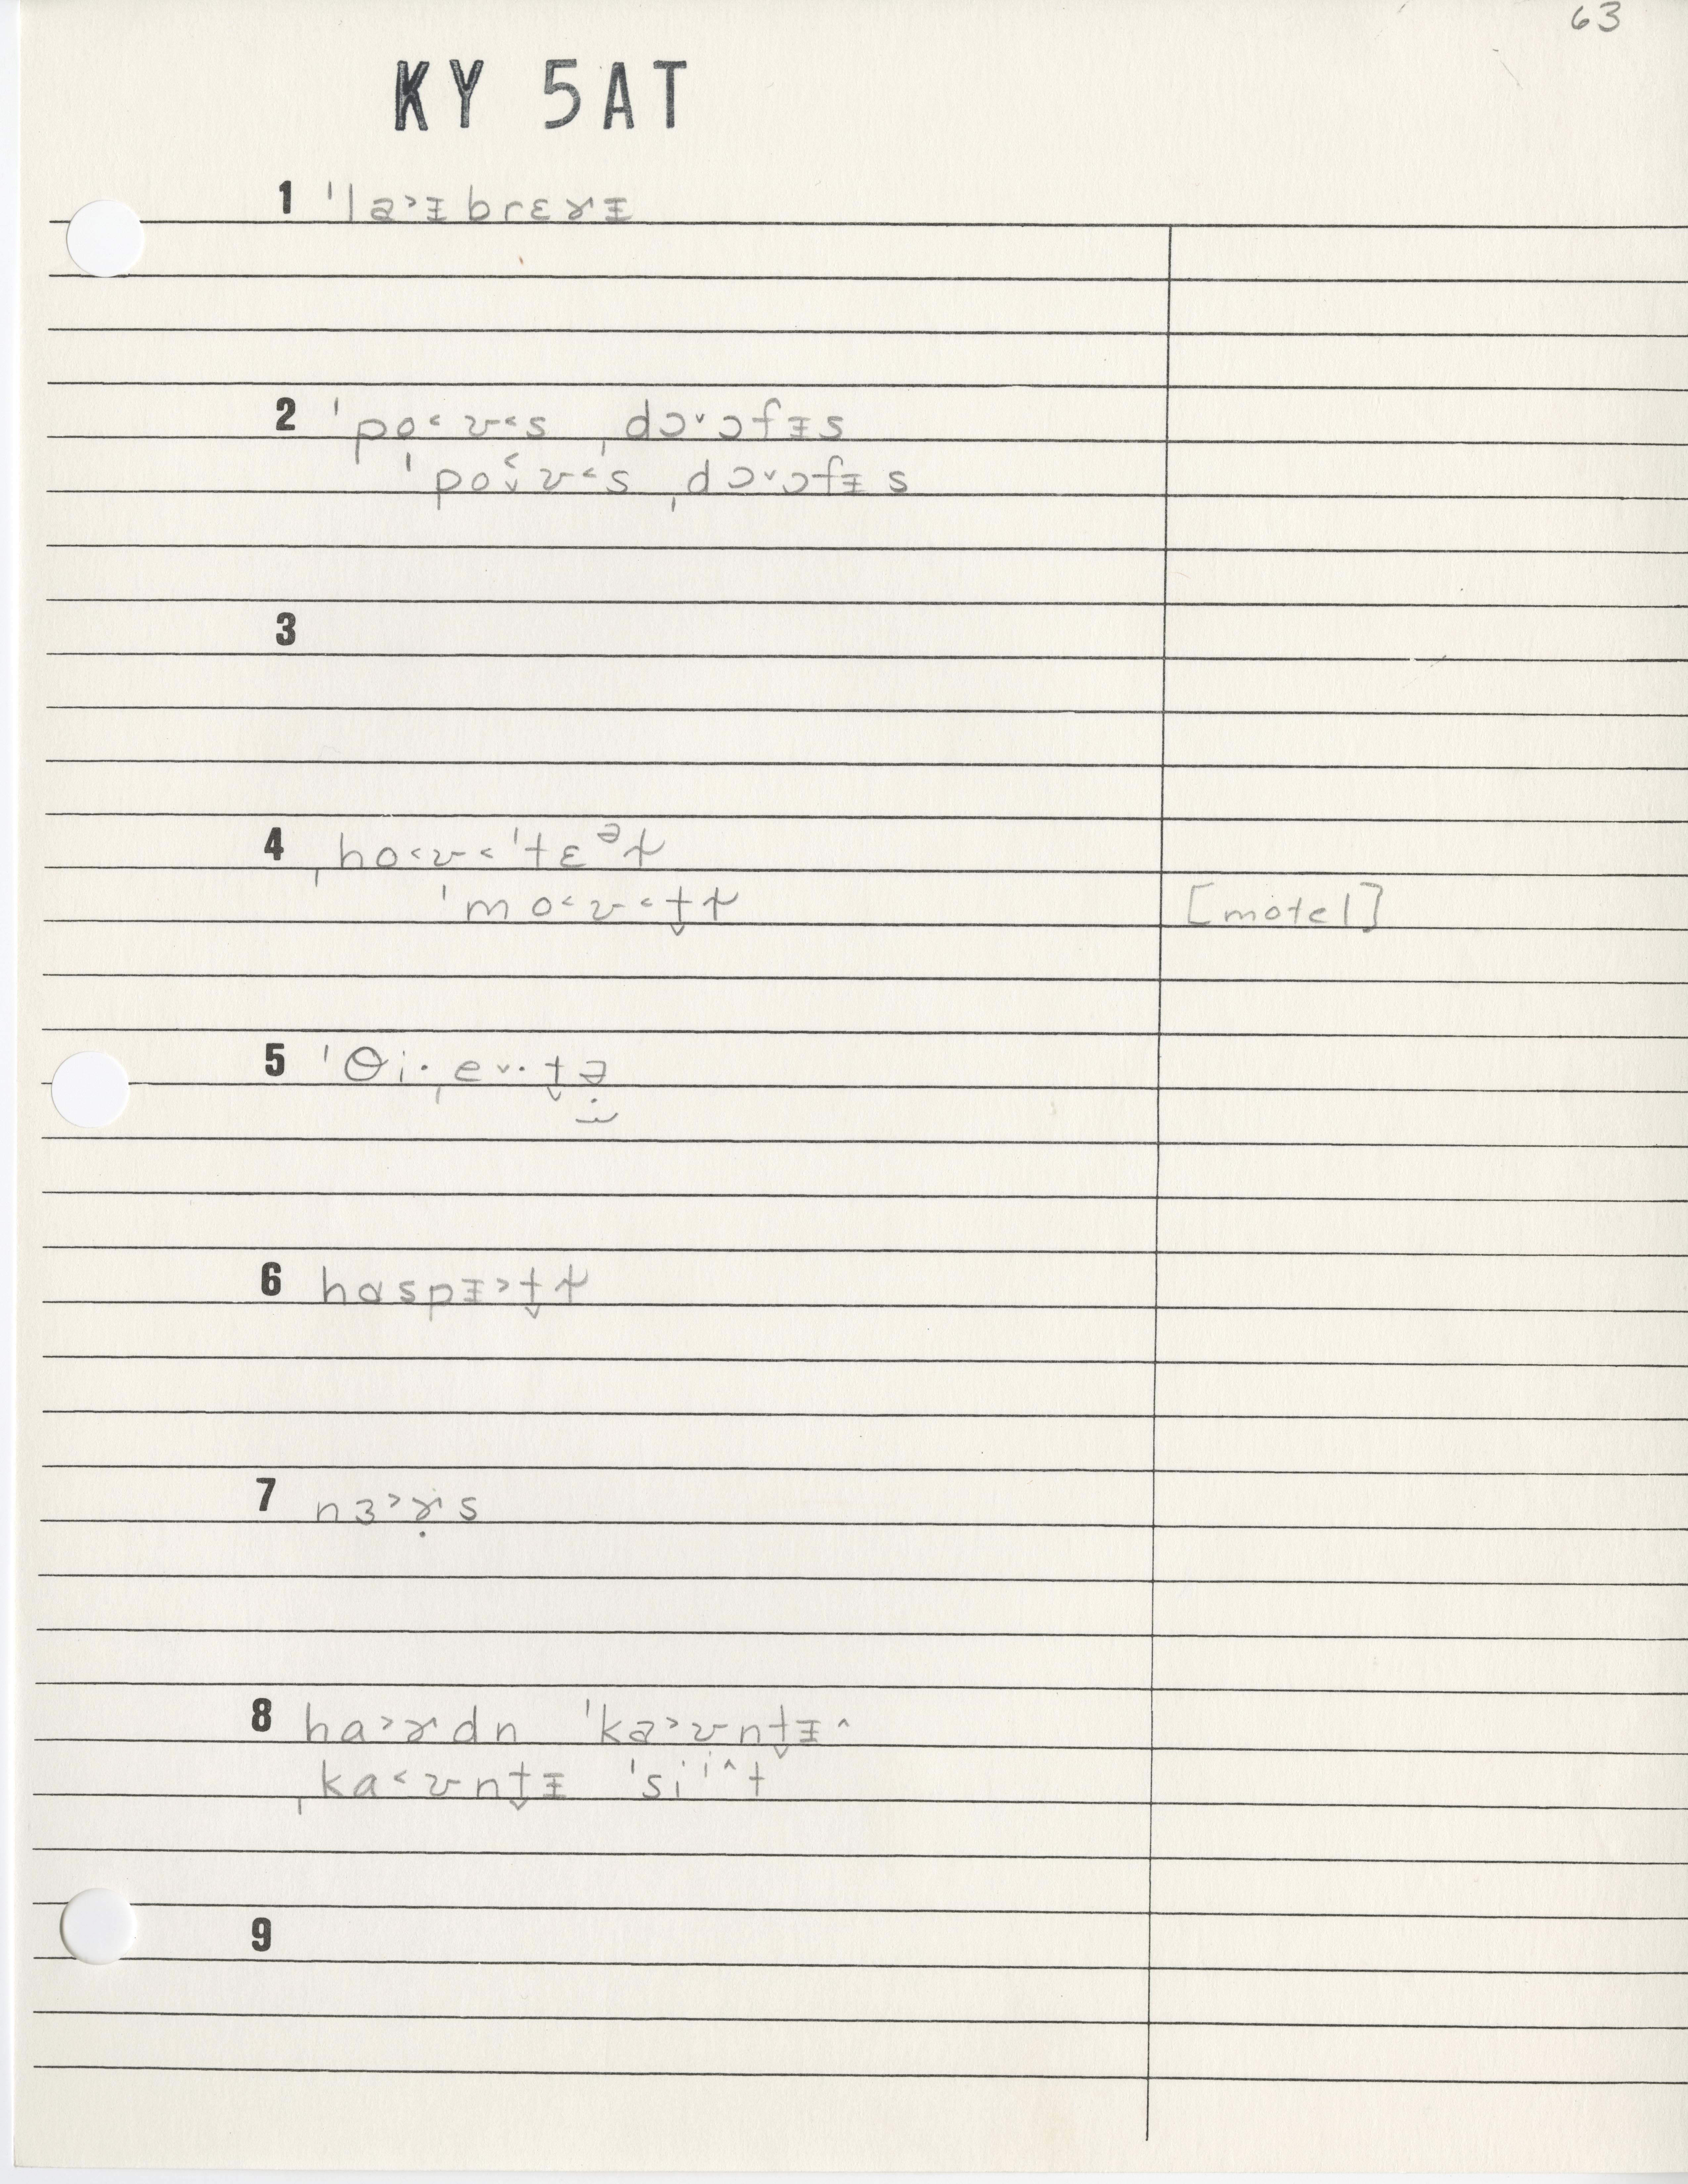 63
KY 5AT
1 ˈla˃ᵻbrɛɚᵻ
2 ˈpo˂ʊ˂s ˌdɔ˅ɔfᵻs
ˈpo˂˅ʊ˂s ˌdɔ˅ɔfᵻs
3
4 ˌho˂ʊ˂ˈtɛᵊɫ
ˈmo˂ʊ˂t̬ɫ [motel]
5 ˈθi·ˌe˅·t̬ə
6 hɑspᵻ˃t̬ɫ
7 nɜ˃ɚ̣s
8 ha˃ɚdn ˈka˃ʊnt̬ᵻ^
ˌka˂ʊnt̬ᵻ ˈsiⁱ^t
9